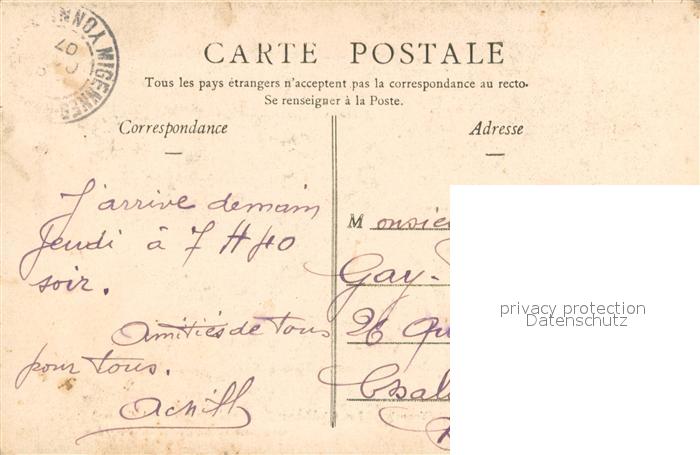 MIGENNES YONN
07
CARTE POSTALE
Tous les pays étrangers n'acceptent pas la correspondance au recto.
Se renseigner à la Poste.
Correspondance
Adresse
J'arrive demain
Jeudi à 7 H 40
soir.
Amitiés de tous
pour tous.
Achill
Monsieu
Gay-
26 Qu
Chal
privacy protection
Datenschutz